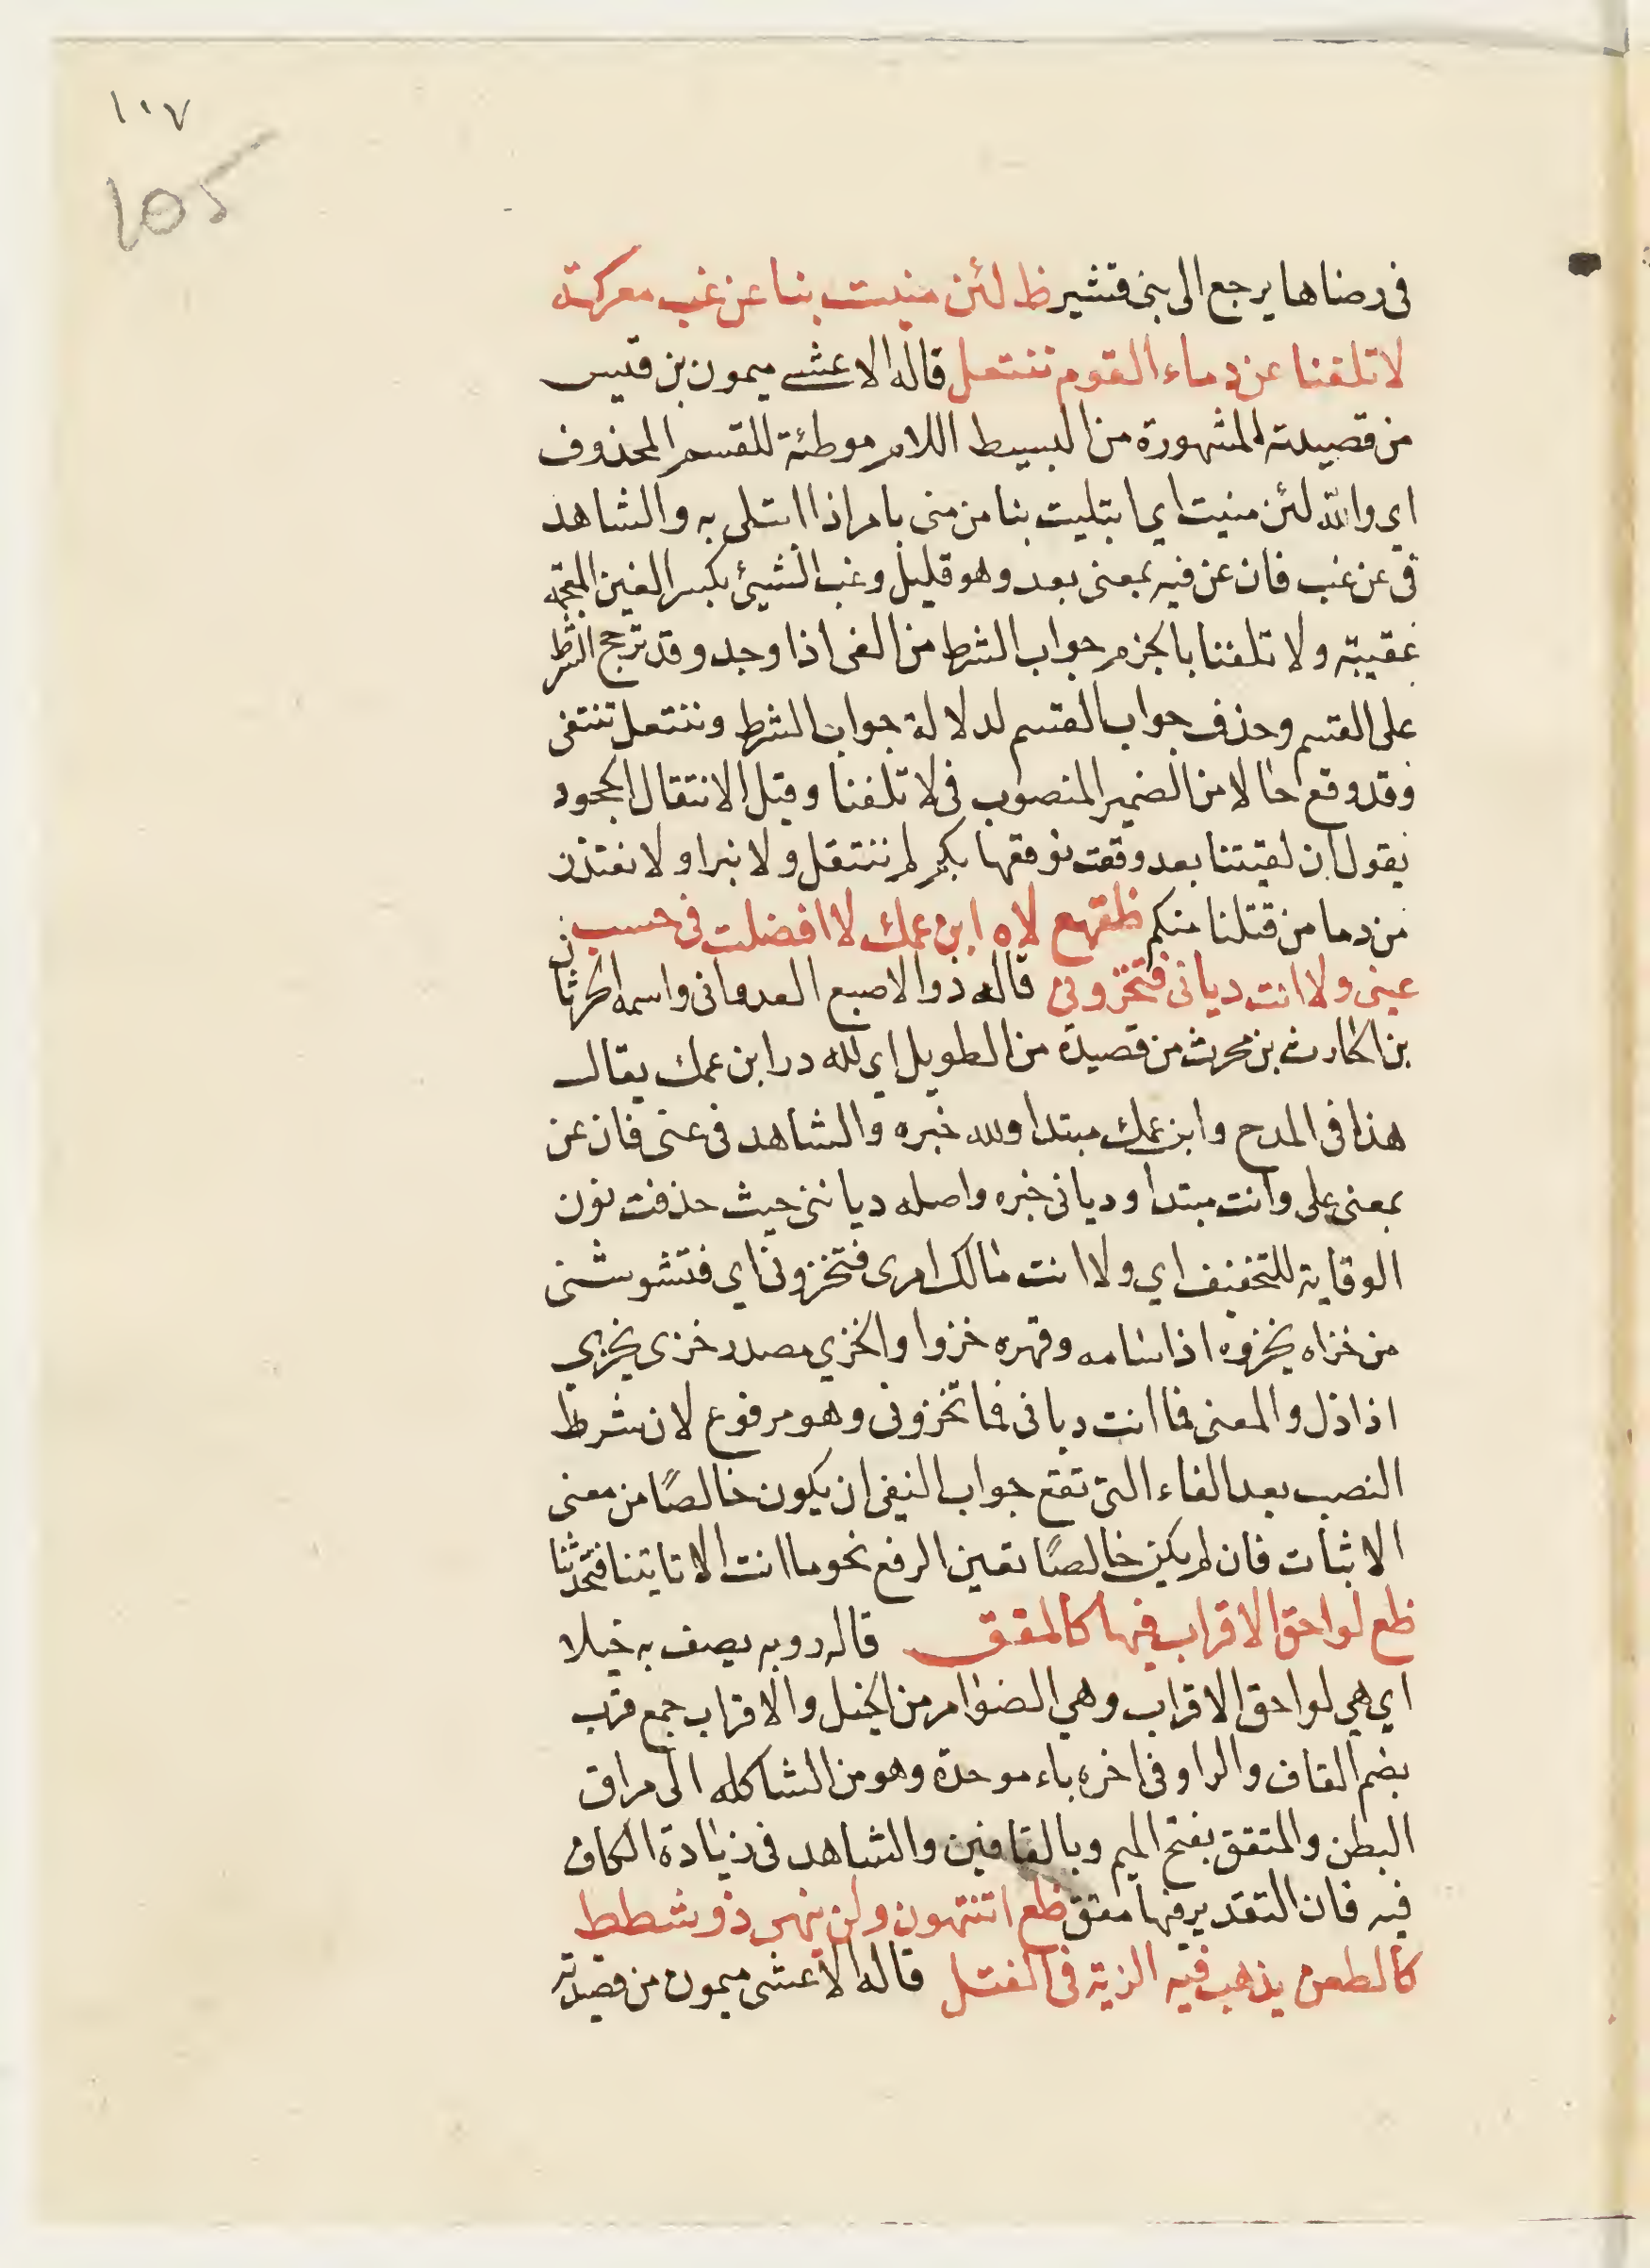 ١٠٧
105
فى رضاها يرجع الى بنى قشير ظ لئن منيت بنا عن غب معركة
لا تلفنا عن دماء القوم ننتفل قاله الاعشى ميمون بن قيس
من قصيدته المشهورة من البسيط اللام موطئة للقسم المحذوف
اى والله لئن منيت اي ابتليت بنا من منى بامر اذا ابتلى به والشاهد
فى عن غب فان عن فيه بمعنى بعد وهو قليل وغب الشيئ بكسر الغين المعجمه
عقيبه ولا تلفنا بالجزم جواب الشرط من الفى اذا وجد وقد ترجح الشرط
على القسم وحذف جواب القسم لدلالة جواب الشرط وننتفل ننتفى
وقد وقع حالا من الضمير المنصوب فى لا تلفنا وقيل الانتفال الجحود
يقول ان لقيتنا بعد وقعت نوقعها بكم لم ننتفل ولا نبرا ولا نعتذر
من دما من قتلنا منكم ظقهع لاه ابن عمك لا افضلت فى حسب
عنى ولا انت ديانى فتخزونى قاله ذو الاصبع العدوانى واسمه الحرثان
بن الحارث بن محرث من قصيدة من الطويل اى لله در ابن عمك يقال
هذا فى المدح وابن عمك مبتدا ولله خبره والشاهد فى عنى فان عن
بمعنى على وانت مبتدا وديانى خبره واصله دياننى حيث حذفت نون
الوقاية للتخفيف اي ولا انت مالك امرى فتخزونى اي فتشوشنى
من خزاه يخزوه اذا سامه وقهره خزوا والخزي مصدر خزى يخزي
اذا ذل والمعنى فما انت ديانى فما تخزونى وهو مرفوع لان شرط
النصب بعد الفاء التى تقع جواب النفى ان يكون خالصًا من معنى
الاثبات فان لم يكن خالصًا تعين الرفع نحو ما انت الا تاتينا فتحدثنا
ظع لواحق الاقراب فيها كالمقق قاله روبه يصف به خيلا
اي هي لواحق الاقراب وهي الضوامر من الخيل والاقراب جمع قرب
بضم القاف والرا وفى اخره باء موحدة وهو من الشاكله الى مراق
البطن والمتقق بفتح الميم وبالقافين والشاهد فى زيادة الكاف
فيه فان التقدير فيها مقق ظع اتنتهون ولن ينهى ذو شطط
كالطعن يذهب فيه الزيت فى الفتل قاله الاعشى ميمون من قصيدته